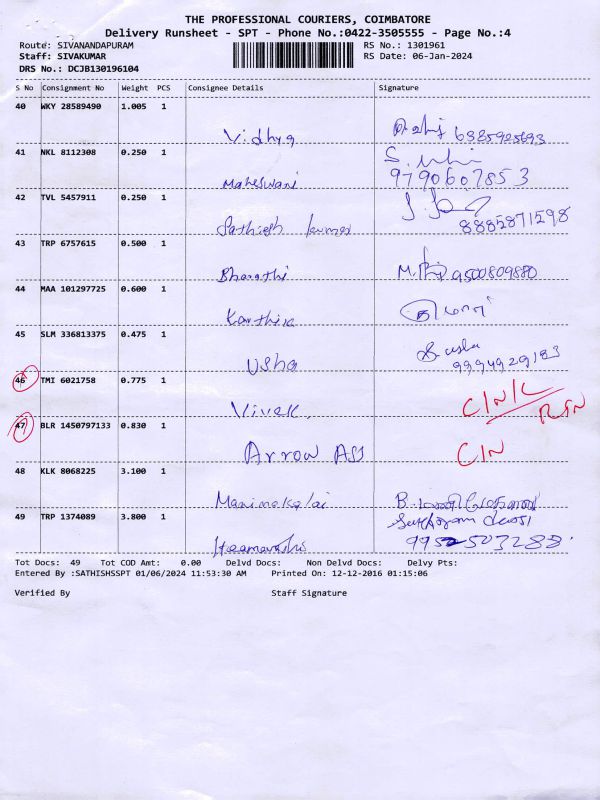 THE PROFESSIONAL COURIERS, COIMBATORE
Delivery Runsheet - SPT - Phone No.:0422-3505555 - Page No.:4
Route: SIVANANDAPURAM
RS No.: 1301961
Staff: SIVAKUMAR
RS Date: 06-Jan-2024
DRS No.: DCJB130196104
S No Consignment No Weight PCS Consignee Details Signature
40 WKY 28589490 1.005 1
Vidhya 6385925693
41 NKL 8112308 0.250 1
Maheswari 9790607853
42 TVL 5457911 0.250 1
Sathish kumar 8885871598
43 TRP 6757615 0.500 1
Bharathi 9500809880
44 MAA 101297725 0.600 1
Karthik
45 SLM 336813375 0.475 1
Usha 9994929183
46 TMI 6021758 0.775 1
Vivek C/N/L RTN
47 BLR 1450797133 0.830 1
Arrow ASS C/N
48 KLK 8068225 3.100 1
Manimekalai
49 TRP 1374089 3.800 1
9952503288
Tot Docs: 49 Tot COD Amt: 0.00 Delvd Docs: Non Delvd Docs: Delvy Pts:
Entered By :SATHISHSSPT 01/06/2024 11:53:30 AM Printed On: 12-12-2016 01:15:06
Verified By Staff Signature